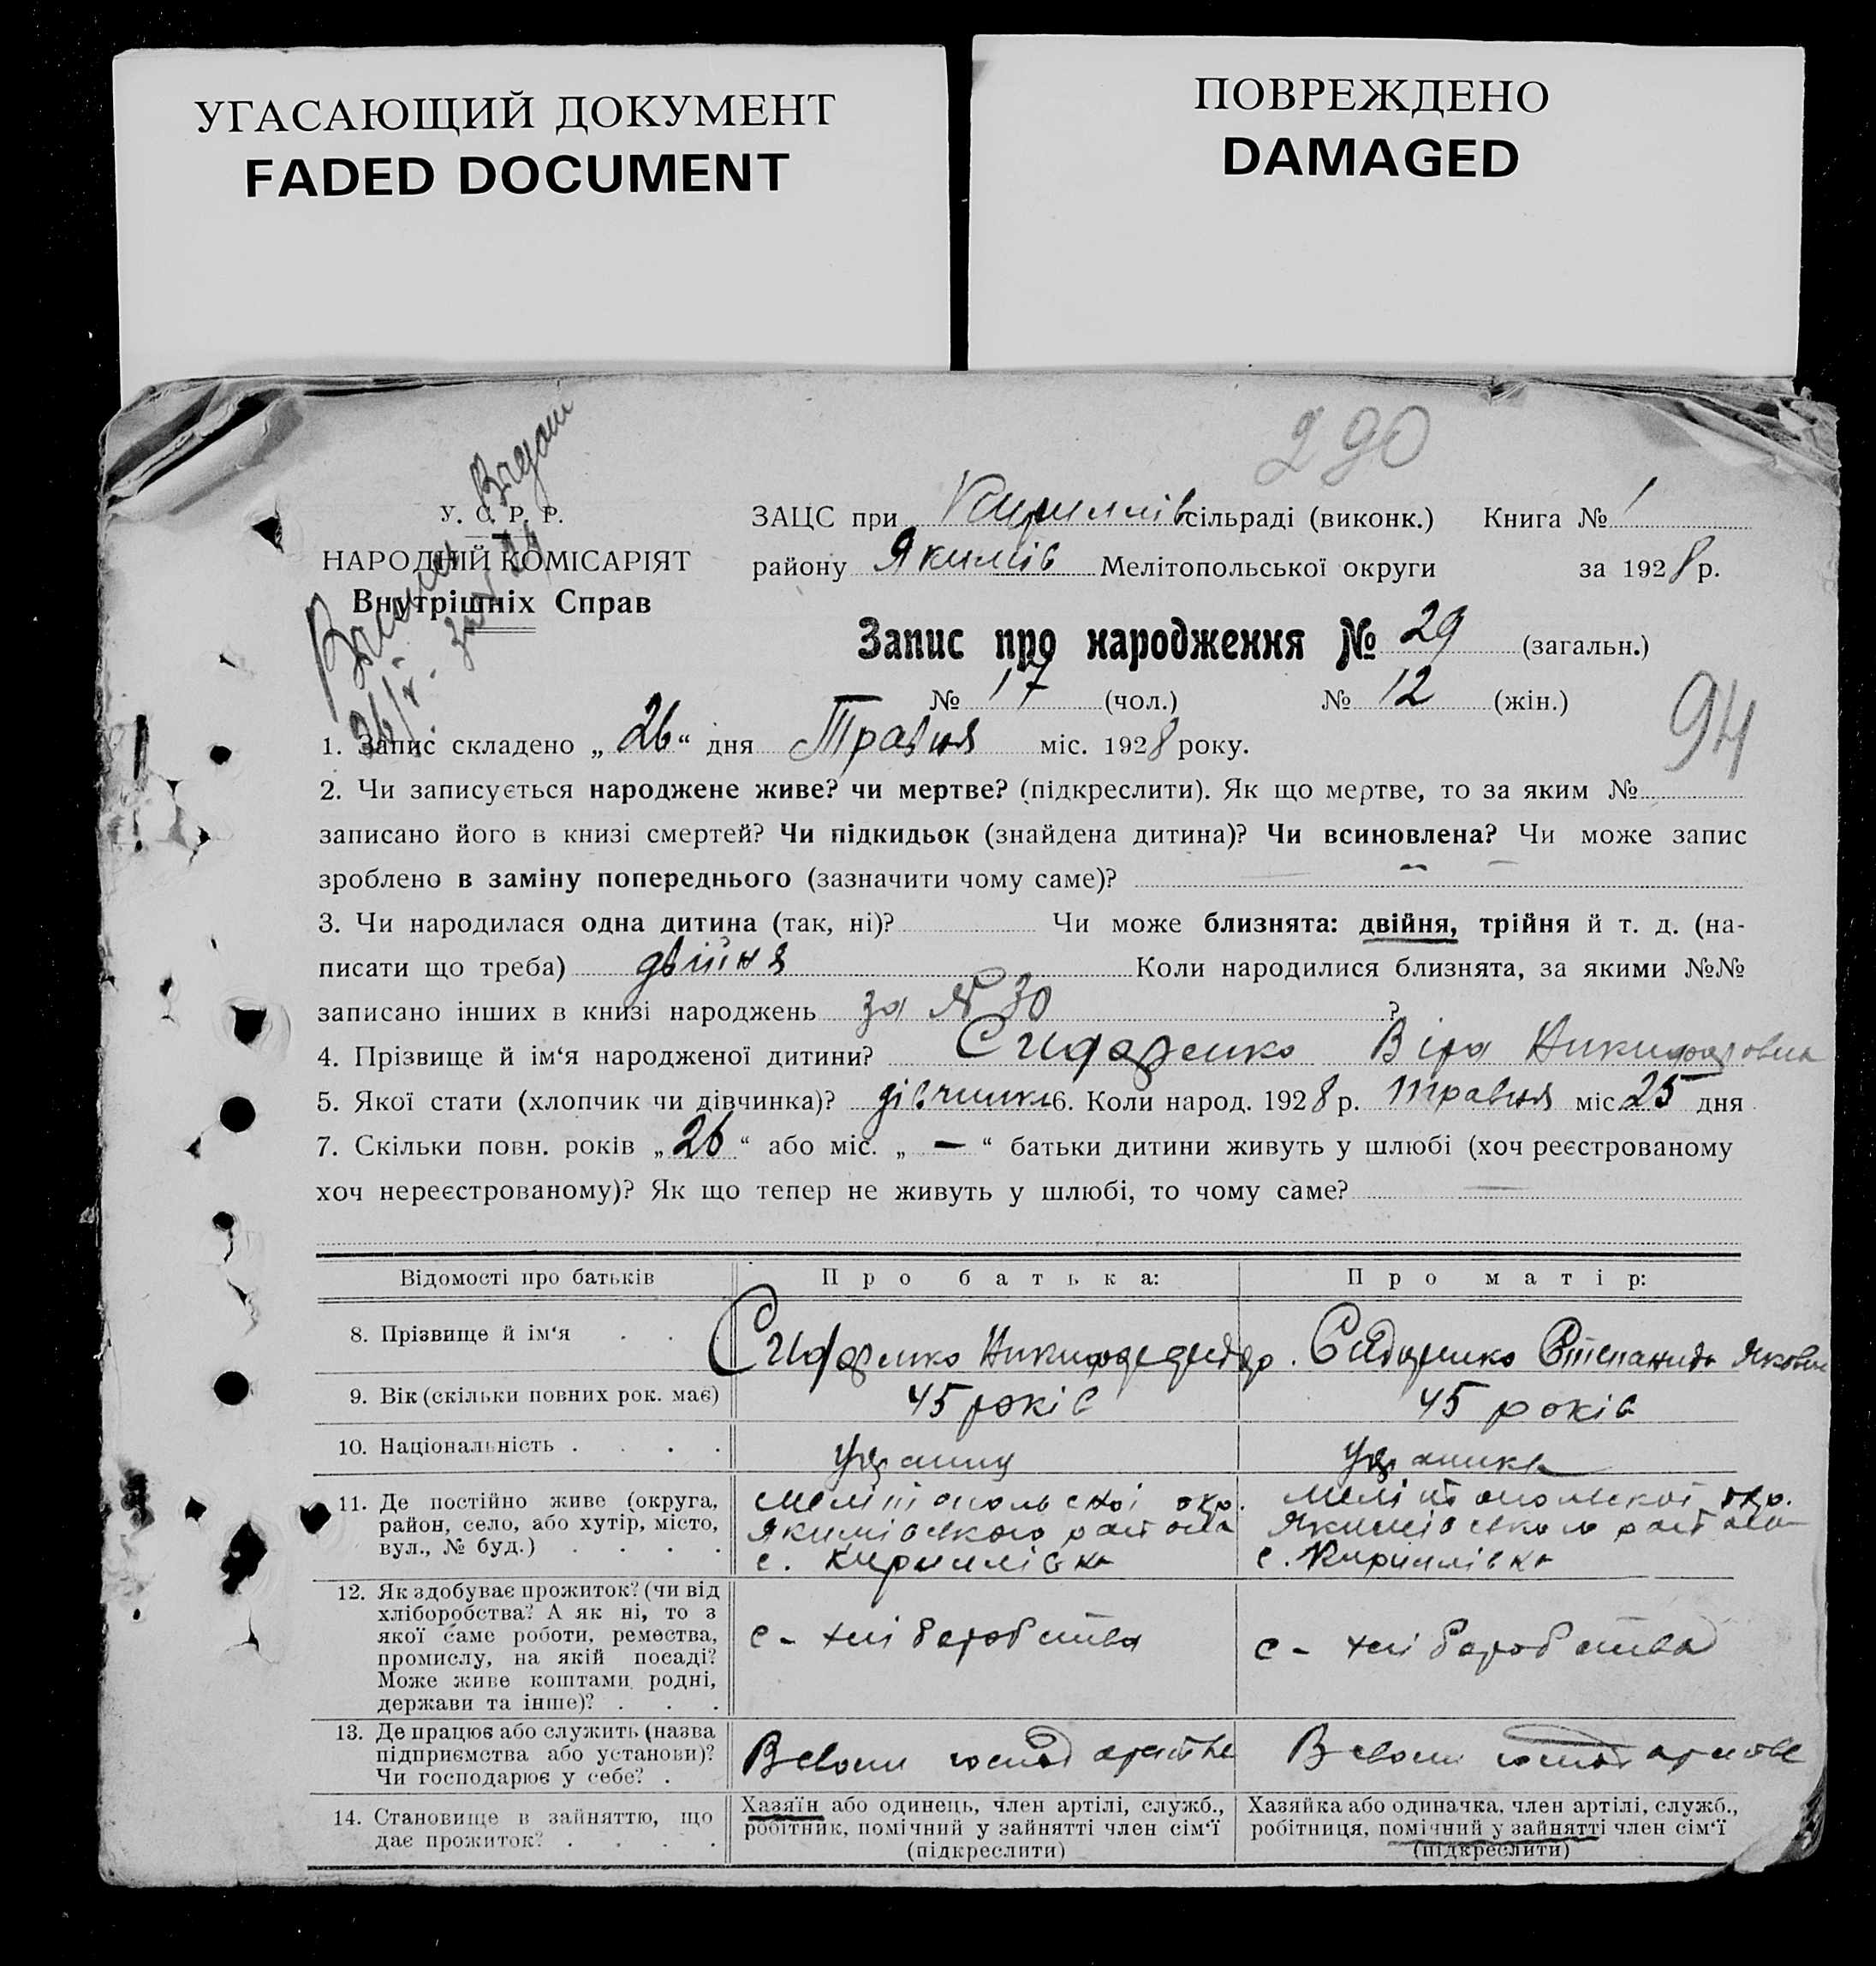 УГАСАЮЩИЙ ДОКУМЕНТ
FADED DOCUMENT
ПОВРЕЖДЕНО
DAMAGED
290
У. С. Р. Р.
НАРОДНІЙ КОМІСАРІЯТ
Внутрішніх Справ
ЗАЦС при Кириллів сільраді (виконк.) Книга № 1
району Якимів Мелітопольської округи за 1928 р.
Запис про народження № 29 (загальн.)
№ 17 (чол.) № 12 (жін.)
94
1. Запис складено „26“ дня Травня міс. 1928 року.
2. Чи записується народжене живе? чи мертве? (підкреслити). Як що мертве, то за яким №
записано його в книзі смертей? Чи підкидьок (знайдена дитина)? Чи всиновлена? Чи може запис
зроблено в заміну попереднього (зазначити чому саме)? —
3. Чи народилася одна дитина (так, ні)? Чи може близнята: двійня, трійня й т. д. (на-
писати що треба) двійня Коли народилися близнята, за якими №№
записано інших в книзі народжень за № 30 ?
4. Прізвище й ім‘я народженої дитини? Сидоренко Віра Никифоровна
5. Якої стати (хлопчик чи дівчинка)? дівчинка 6. Коли народ. 1928 р. травня міс. 25 дня
7. Скільки повн. років „26“ або міс. „—“ батьки дитини живуть у шлюбі (хоч реєстрованому
хоч нереєстрованому)? Як що тепер не живуть у шлюбі, то чому саме? —
Відомості про батьків Про батька: Про матір:
8. Прізвище й ім‘я Сидоренко Сидоренко Степанида Яковл
9. Вік (скільки повних рок. має) 45 років 45 років
10. Національність українц українка
11. Де постійно живе (округа, район, село, або хутір, місто, вул., № буд.)
Мелітопольської окр. Мелітопольської окр.
Якимівського району Якимівського району
с. Кириллівка с. Кириллівка
12. Як здобуває прожиток? (чи від
хліборобства? А як ні, то з
якої саме роботи, ремества,
промислу, на якій посаді?
Може живе коштами родні,
держави та інше)?
с-хліборобства с-хліборобства
13. Де працює або служить (назва
підприємства або установи)?
Чи господарює у себе?
В своїм господарстве В своїм господарстве
14. Становище в зайняттю, що
дає прожиток?
Хазяїн або одинець, член артілі, служб.,
робітник, помічний у зайнятті член сім‘ї
(підкреслити)
Хазяйка або одиначка, член артілі, служб.,
робітниця, помічний у зайнятті член сім‘ї
(підкреслити)